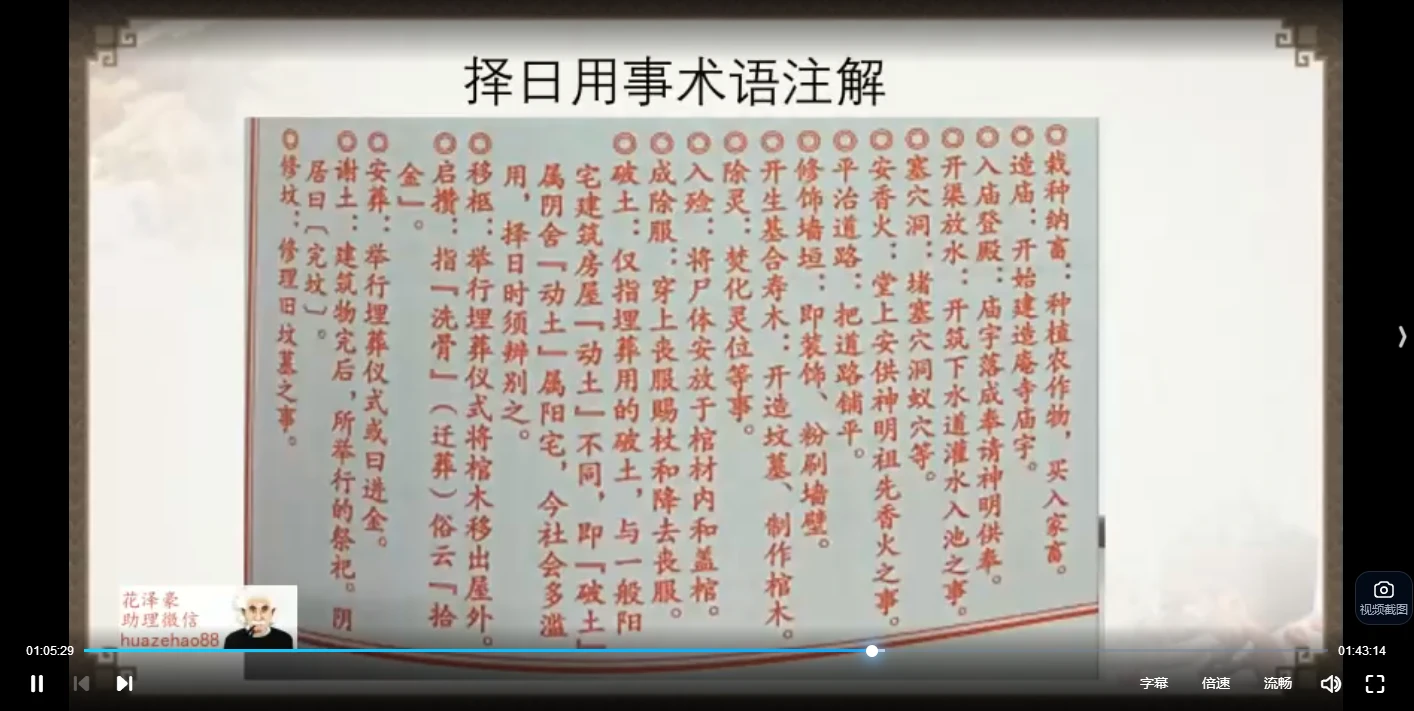 择日用事术语注解
◎栽种纳畜：种植农作物，买入家畜。
◎造庙：开始建造庵寺庙宇。
◎入庙登殿：庙宇落成奉请神明供奉。
◎开渠放水：开筑下水道灌水入池之事。
◎塞穴洞：堵塞穴洞蚁穴等。
◎安香火：堂上安供神明祖先香火之事。
◎平治道路：把道路铺平。
◎修饰墙垣：即装饰、粉刷墙壁。
◎开生基合寿木：开造坟墓、制作棺木。
◎除灵：焚化灵位等事。
◎入殓：将尸体安放于棺材内和盖棺。
◎成除服：穿上丧服赐杖和降去丧服。
◎破土：仅指埋葬用的破土，与一般阳
宅建筑房屋『动土』不同，即『破土』
属阴舍『动土』属阳宅，今社会多滥
用，择日时须辨别之。
◎移柩：举行埋葬仪式将棺木移出屋外。
◎启攒：指『洗骨』（迁葬）俗云『拾
金』。
◎安葬：举行埋葬仪式或曰进金。
◎谢土：建筑物完后，所举行的祭祀。阴
居曰〔完坟〕。
◎修坟：修理旧坟墓之事。
花泽豪
助理微信
huazehao88
视频截图
01:05:29
01:43:14
字幕
倍速
流畅